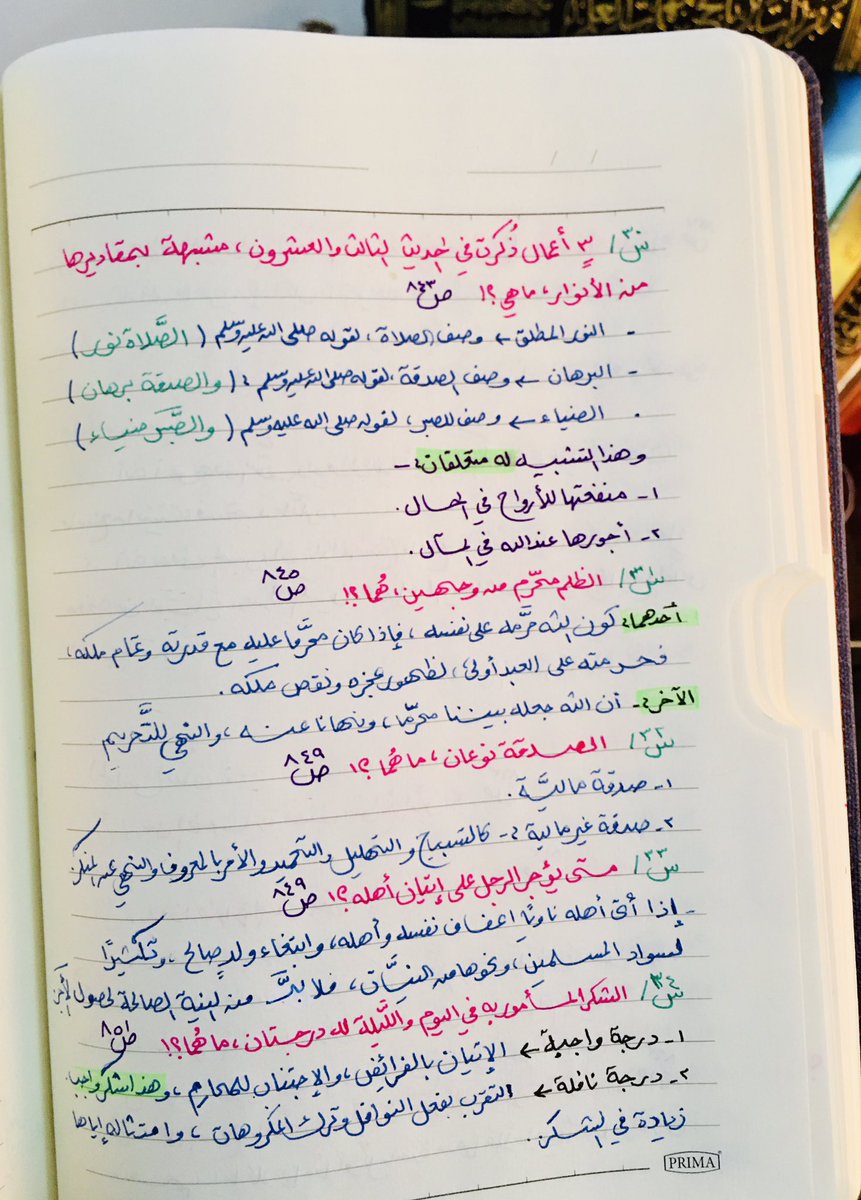 س٣٠/ ٣ أعمال ذُكرت في الحديث الثالث والعشرون، مشبهة بمقاديرها
من الأنوار، ماهي؟! ص٨٤٣
- النور المطلق ← وصف الصلاة، لقوله صلى الله عليه وسلم (الصَّلاة نور)
- البرهان ← وصف الصدقة، لقوله صلى الله عليه وسلم: (والصدقة برهان)
- الضياء ← وصف للصبر، لقوله صلى الله عليه وسلم (والصَّبر ضياء)
وهذا التشبيه له متعلقات:-
١- منفعتها للأرواح في الحال.
٢- أجورها عند الله في المآل.
س٣١/ الظلم محرّم من وجهين، هُما؟! ص٨٤٥
أحدهما: كون الله حرَّمه على نفسه، فإذا كان محرَّما عليه مع قدرته وتمام ملكه،
فحرمته على العبد أولى، لظهور عجزه ونقص ملكه.
الآخر:- أن الله جعله بيننا محرّما، ونهانا عنه، والنهي للتَّحريم
س٣٢/ الصدقة نوعان، ما هُما؟! ص٨٤٩
١- صدقة ماليَّة.
٢- صدقة غير مالية:- كالتسبيح والتهليل والتحميد والأمر بالمعروف والنهي عن المنكر
س٣٣/ متى يؤجر الرجل على إتيان أهله؟! ص٨٤٩
- إذا أتى أهله ناويًا اعفاف نفسه وأهله، وابتغاء ولدٍ صالح، وتكثيرًا
لسواد المسلمين، ونحوها من النيَّات، فلا بدَّ من النية الصالحة لحصول الأجر
س٣٤/ الشكر المأمور به في اليوم والليلة له درجتان، ما هُما؟! ص٨٥١
١- درجة واجبة ← الإتيان بالفرائض، والإجتناب للمحارم، وهذا شكر واجب
٢- درجة نافلة ← التقرب بفعل النوافل وترك المكروهات، وامتثاله إياها
زيادة في الشكر.
PRIMA